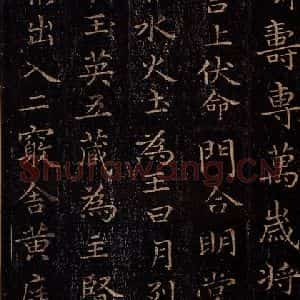 壽専萬歲将
上伏命門合明堂
水火土為王日月列
王英五藏為主腎
出入二竅舍黃庭
Shufawang.CN